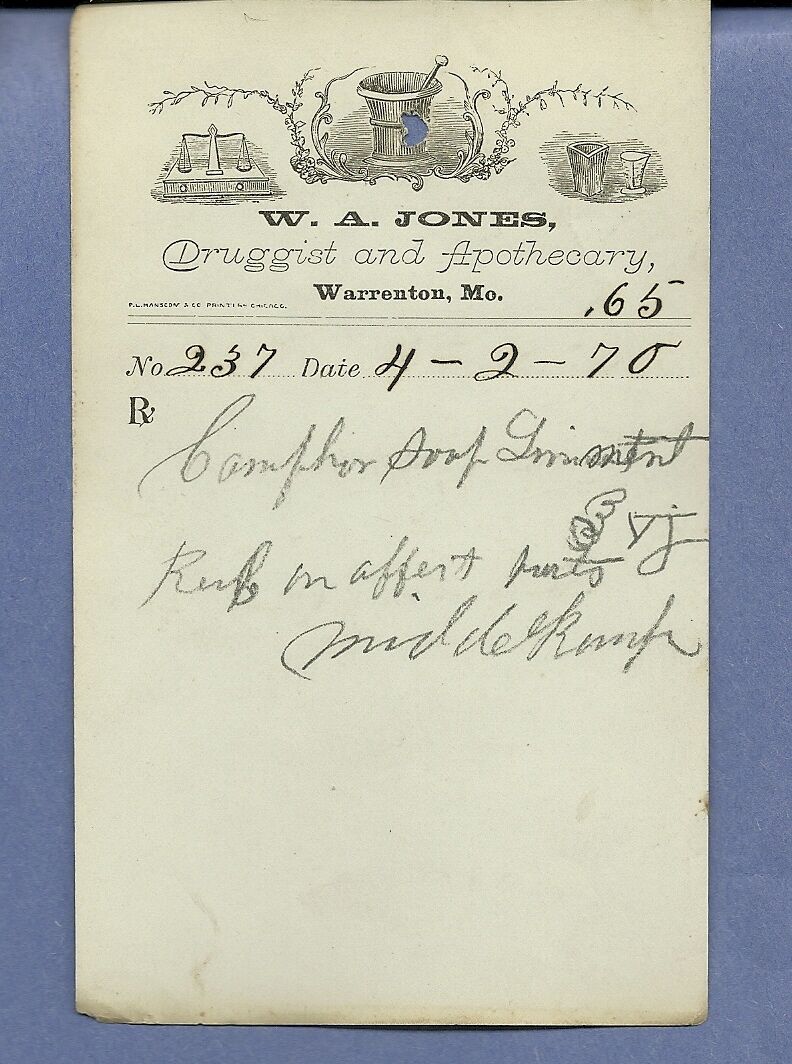 W. A. JONES,
Druggist and Apothecary,
Warrenton, Mo.
P.L. HANSCOM & CO PRINTERS CHICAGO.
.65
No. 237 Date 4-2-70
℞
Camphor Soap Liniment
℥ vj
Rub on affect
middelkamp